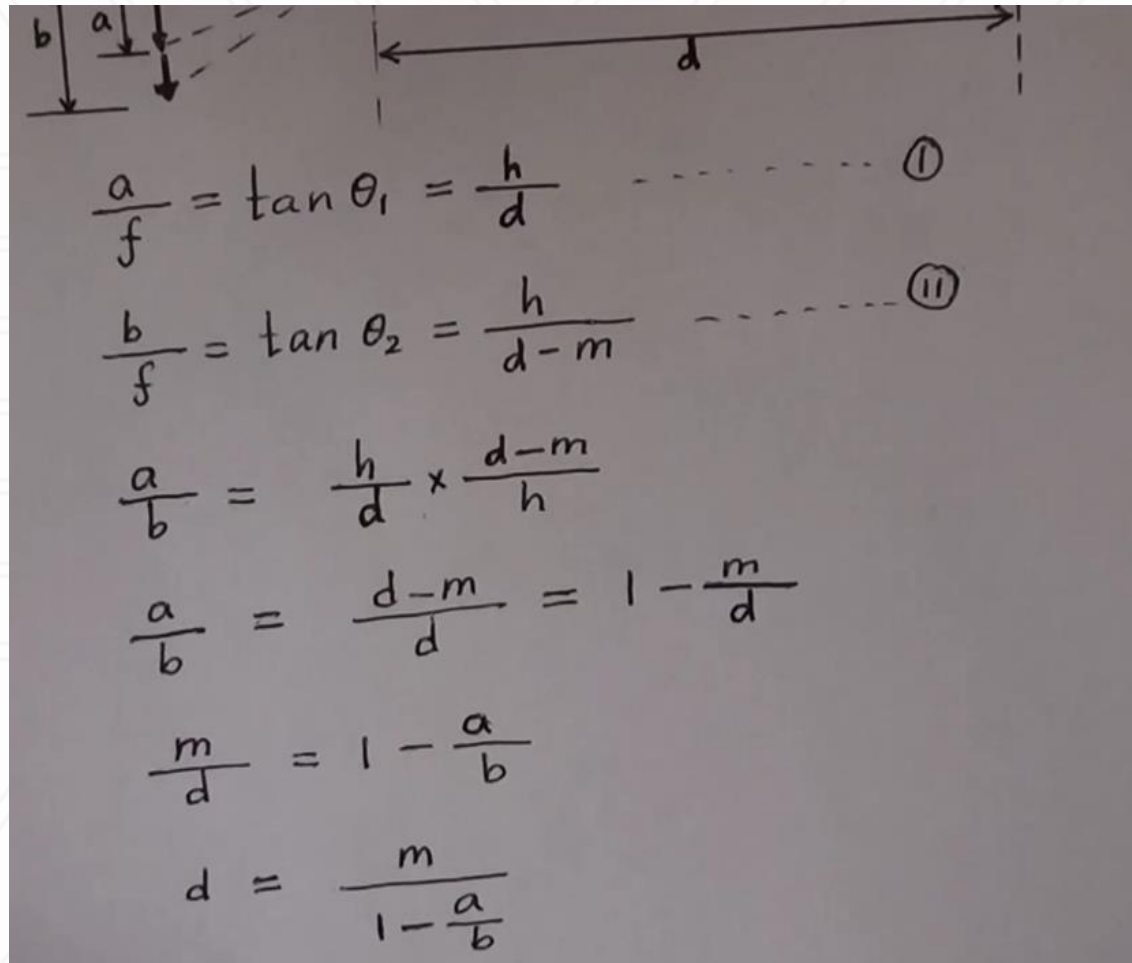 b a
d
a/f = tan θ₁ = h/d -------- Ⓘ
b/f = tan θ₂ = h/(d-m) -------- ⓘⓘ
a/b = h/d × (d-m)/h
a/b = (d-m)/d = 1 - m/d
m/d = 1 - a/b
d = m/(1 - a/b)